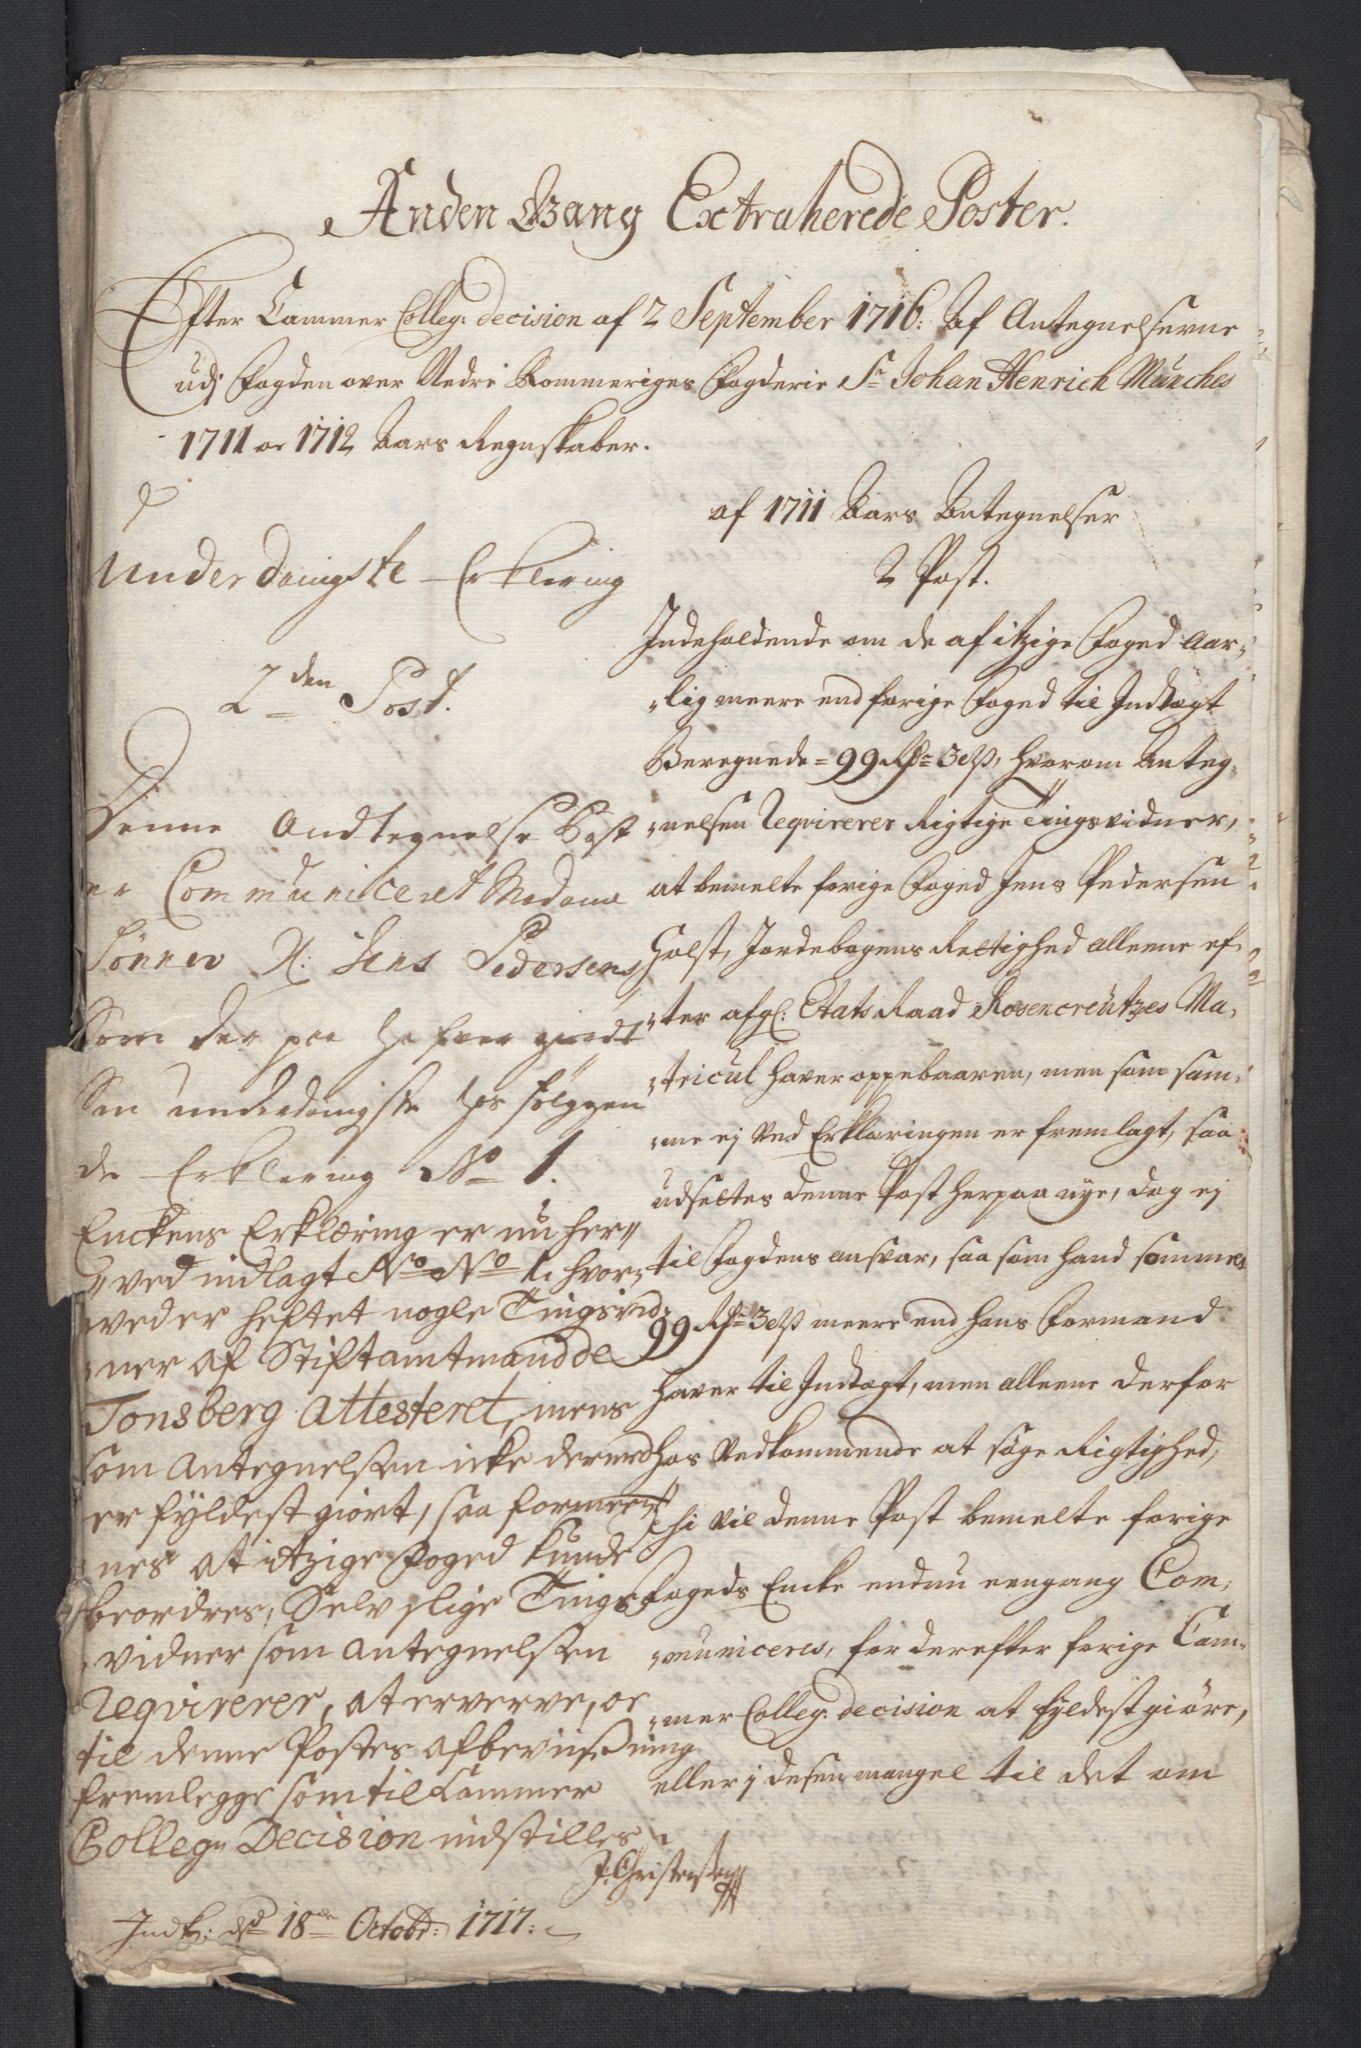 Anden Gang Extraherede Poster.
Efter Cammer Colleg: decision af 2 September 1716: Af Antegnelserne
udj Fogden over Nedre Rommeriges Fogderie Sr Johan Henrich Munches
1711 oc 1712 Aars Regnskaber.
af 1711 Aars Antegnelser
2 Post.
Indeholdende om de af itzige Foged Aar„
„lig meere end forige Foged til Indtægt
Beregnede = 99 Rdr 3 , hvorom Anteg„
„nelsen Reqvirerer Rigtige Tingsvidner,
at bemelte forige Foged Jens Pedersen
Holst, Jordebogens Rettighed alleene ef„
„ter afg: Etats Raad Rosencreutzes Ma„
„tricul haver oppebaaren, men som sam„
„me ej ved Erklæringen er fremlagt, saa
udsettes denne Post herpaa nye, dog ej
til Fogdens ansvar, saa som hand sommes
99 Rdr 3 meere end hans Formand
haver til Indtægt, men alleene derfor
hos Vedkommende at søge Rigtighed,
thi vil denne Post bemelte forige
Fogeds Encke endnu eengang Com„
„municeris, for derefter forige Cam„
„mer Colleg: decision at fyldestgiøre,
eller j desen mangel til det om
Underdanigste Erklering
2den Post.
Denne Andtegnelse Post
er Communiceret Madame
Sønnev Sl: Jens Pedersens
Som der paa hafver giordt
Sin underdanigste hos følggen
de Erklering No 1.
Enckens Erklæring er nu her„
„ved indlagt No No 1. hvor„
ved er heftet nogle Tingsvid„
„ner af Stiftamtmand de
Tonsberg Attesteret, mens
som Antegnelsen icke dermed
er fyldest giort, saa formeen„
nes at itzige Foged kunde
beordres, Selv slige Tings„
„vidner som Antegnelsen
Reqvirerer, at erverve, oc
til denne Postes afbeviisning
fremlegge som til Cammer
Colleg: Decision indstilles
J Christensen
Indk: d 18de Octobr: 1717: